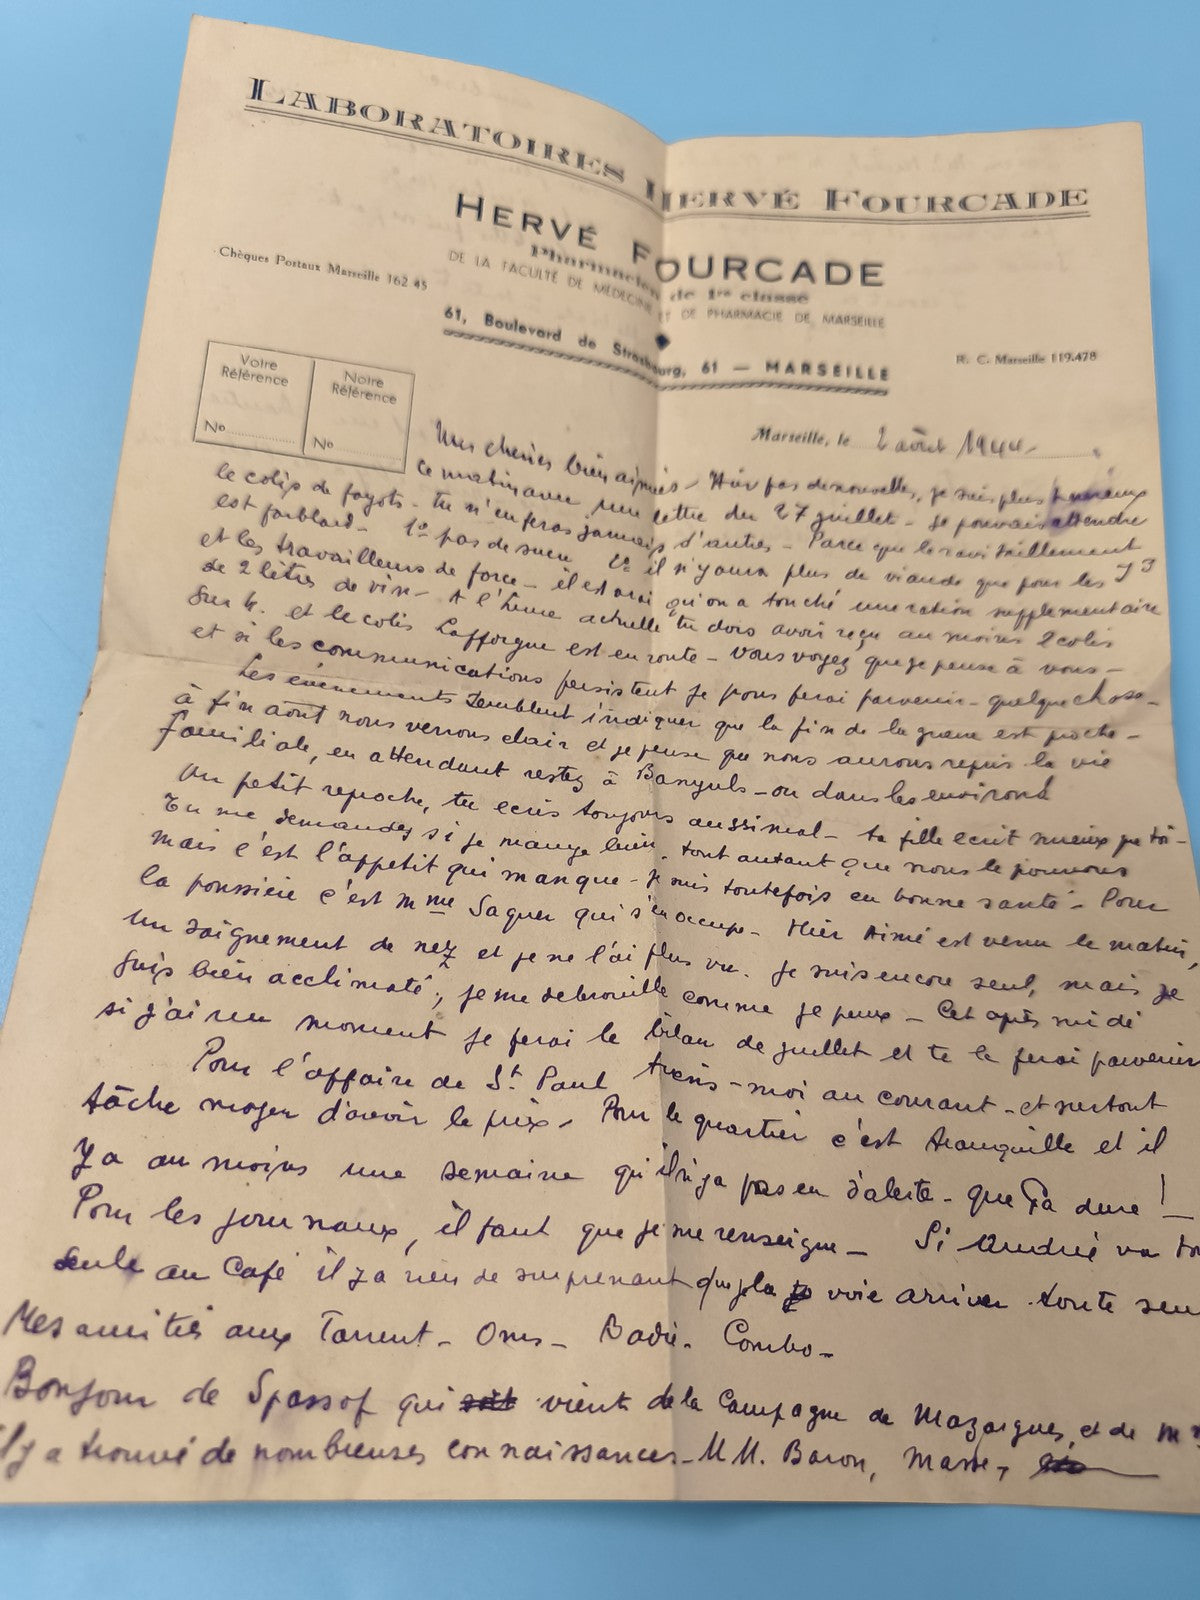 LABORATOIRES HERVÉ FOURCADE
HERVÉ FOURCADE
Pharmacien de 1re classe
DE LA FACULTÉ DE MÉDECINE ET DE PHARMACIE DE MARSEILLE
61, Boulevard de Strasbourg, 61 — MARSEILLE
Chèques Postaux Marseille 162 45
R. C. Marseille 119.478
Votre Référence
No
Notre Référence
No
Marseille, le 2 août 1944
Mes chéries bien aimées - Hier pas de nouvelles, je suis plus heureux
ce matin avec une lettre du 27 juillet - je pouvais attendre
le colis de fayots - tu n'en feras jamais d'autres - Parce que le ravitaillement
est faiblard - 1° pas de sucre 2° il n'y aura plus de viande que pour les J3
et les travailleurs de force - il est vrai qu'on a touché une ration supplémentaire
de 2 litres de vin - A l'heure actuelle tu dois avoir reçu au moins 2 colis
et le colis Lafforgue est en route - Vous voyez que je pense à vous -
et si les communications persistent je vous ferai parvenir - quelque chose -
Les événements semblent indiquer que la fin de la guerre est proche -
à fin août nous verrons clair et je pense que nous aurons repris la vie
familiale, en attendant restez à Banyuls - ou dans les environs
Un petit reproche, tu ecris toujours aussi mal - ta fille ecrit mieux que toi -
Tu me demandes si je mange bien, tout autant que nous le pouvons
mais c'est l'appetit qui manque - je suis toutefois en bonne santé - Pour
la poussière c'est Mme Saguer qui s'en occupe - Hier Aimé est venu le matin,
un saignement de nez et je ne l'ai plus vu. Je suis encore seul, mais je
suis bien acclimaté, je me debrouille comme je peux - Cet après midi
si j'ai un moment je ferai le bilan de juillet et te le ferai parvenir
Pour l'affaire de St Paul tiens-moi au courant - et surtout
tâche moyen d'avoir le prix - Pour le quartier c'est tranquille et il
y a au moins une semaine qu'il n'y a pas eu d'alerte - que ça dure ! -
Pour les journaux, il faut que je me renseigne - Si Andrée va
seule au Café il y a rien de surprenant que je la voie arriver toute
Mes amitiés aux Tarrent - Oms - Badie - Combo -
Bonjour de Spassof qui vient de la Campagne de Mazargues, et de
il y a trouvé de nombreuses connaissances - MM. Baron, Masse,